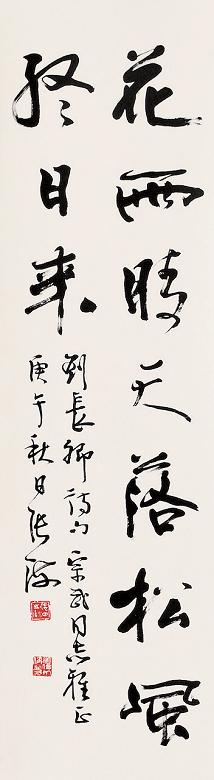 花雨晴天落松風
終日來
劉長卿詩句 宗武同志雅正
庚午秋日張